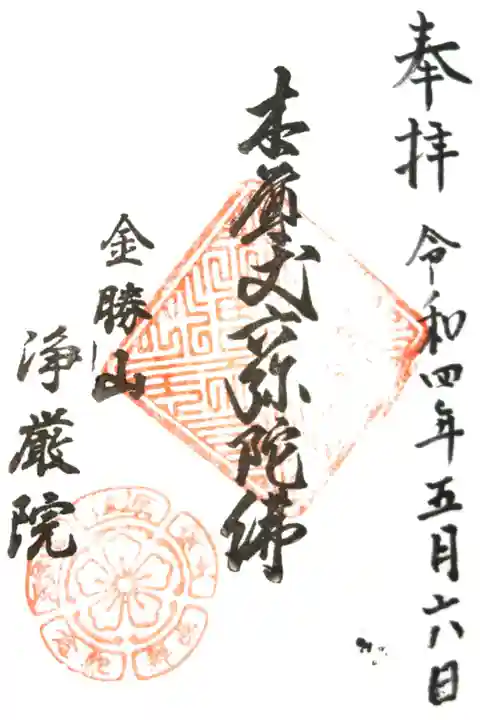 奉拝 令和四年五月六日
本尊丈六弥陀佛
金勝山
浄厳院